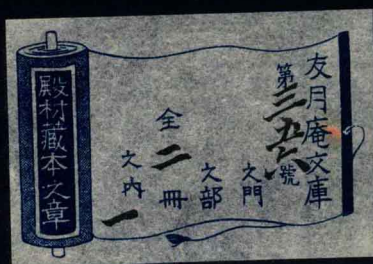 友月庵文庫
第三五六號
文門
文部
全二冊
文内一
殿村藏本之章